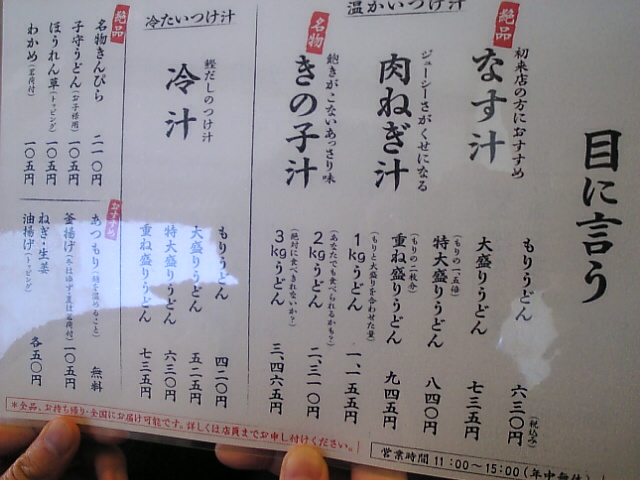 目に言う
温かいつけ汁
絶品
初来店の方におすすめ
なす汁
ジューシーさがくせになる
肉ねぎ汁
名物
飽きがこないあっさり味
きの子汁
もりうどん 六三〇円(税込み)
大盛りうどん 七三五円
(もりの一、五倍)
特大盛りうどん 八四〇円
(もりの二枚分)
重ね盛りうどん 九四五円
(もりと大盛りを合わせた量)
1kgうどん 一、一五五円
(あなたでも食べられるかも?)
2kgうどん 二、三一〇円
(絶対に食べきれないか?)
3kgうどん 三、四六五円
冷たいつけ汁
鰹だしのつけ汁
冷汁
もりうどん 四二〇円
大盛りうどん 五二五円
特大盛りうどん 六三〇円
重ね盛りうどん 七三五円
絶品
名物きんぴら 二一〇円
子守うどん(お子様用) 一〇五円
ほうれん草(トッピング) 一〇五円
わかめ(茗荷付) 一〇五円
おすすめ
あつもり(麺を温めること) 無料
釜揚げ(冬はゆず・夏は茗荷付) 一〇五円
ねぎ・生姜
油揚げ(トッピング) 各五〇円
*全品、お持ち帰り・全国にお届け可能です。詳しくは店員までお申し付けください。
営業時間 11:00〜15:00(年中無休)